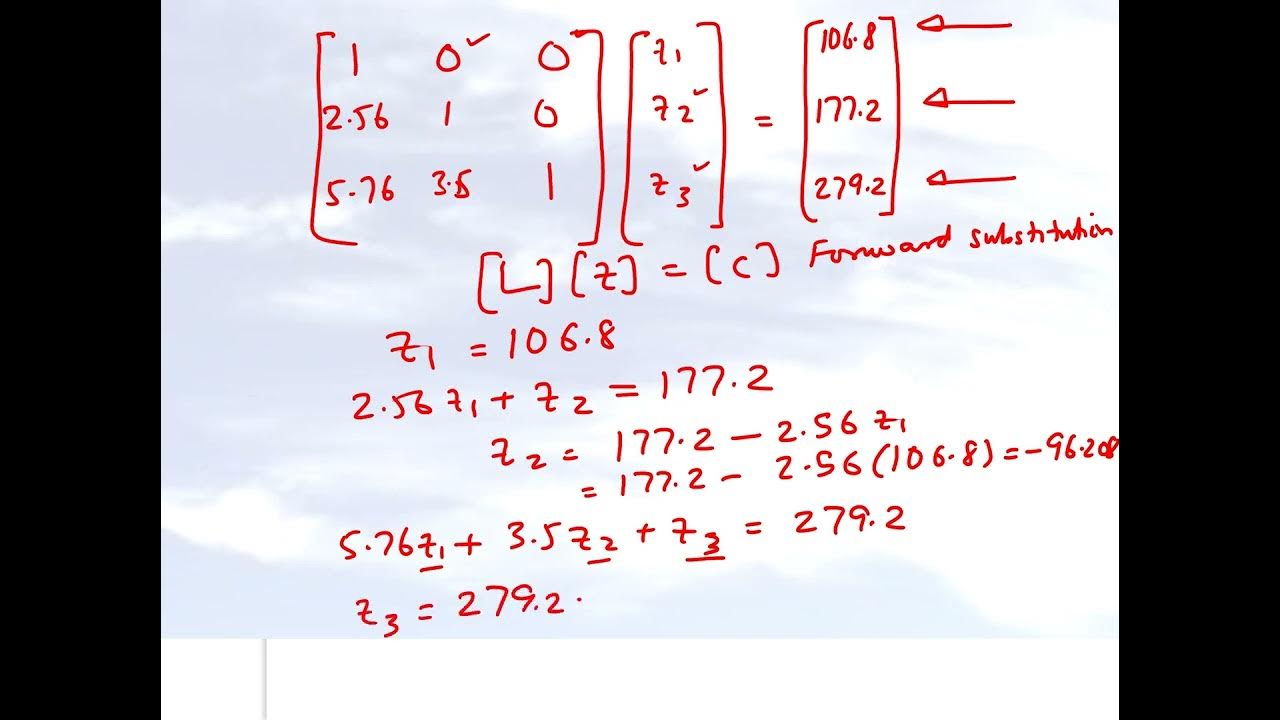 [1 0✓ 0] [z1] = [106.8] ←
[2.56 1 0] [z2✓] = [177.2] ←
[5.76 3.5 1] [z3✓] = [279.2] ←
[L] [z] = [C] Forward substitution
z1 = 106.8
2.56 z1 + z2 = 177.2
z2 = 177.2 - 2.56 z1
= 177.2 - 2.56 (106.8) = -96.208
5.76z1 + 3.5z2 + z3 = 279.2
z3 = 279.2 -